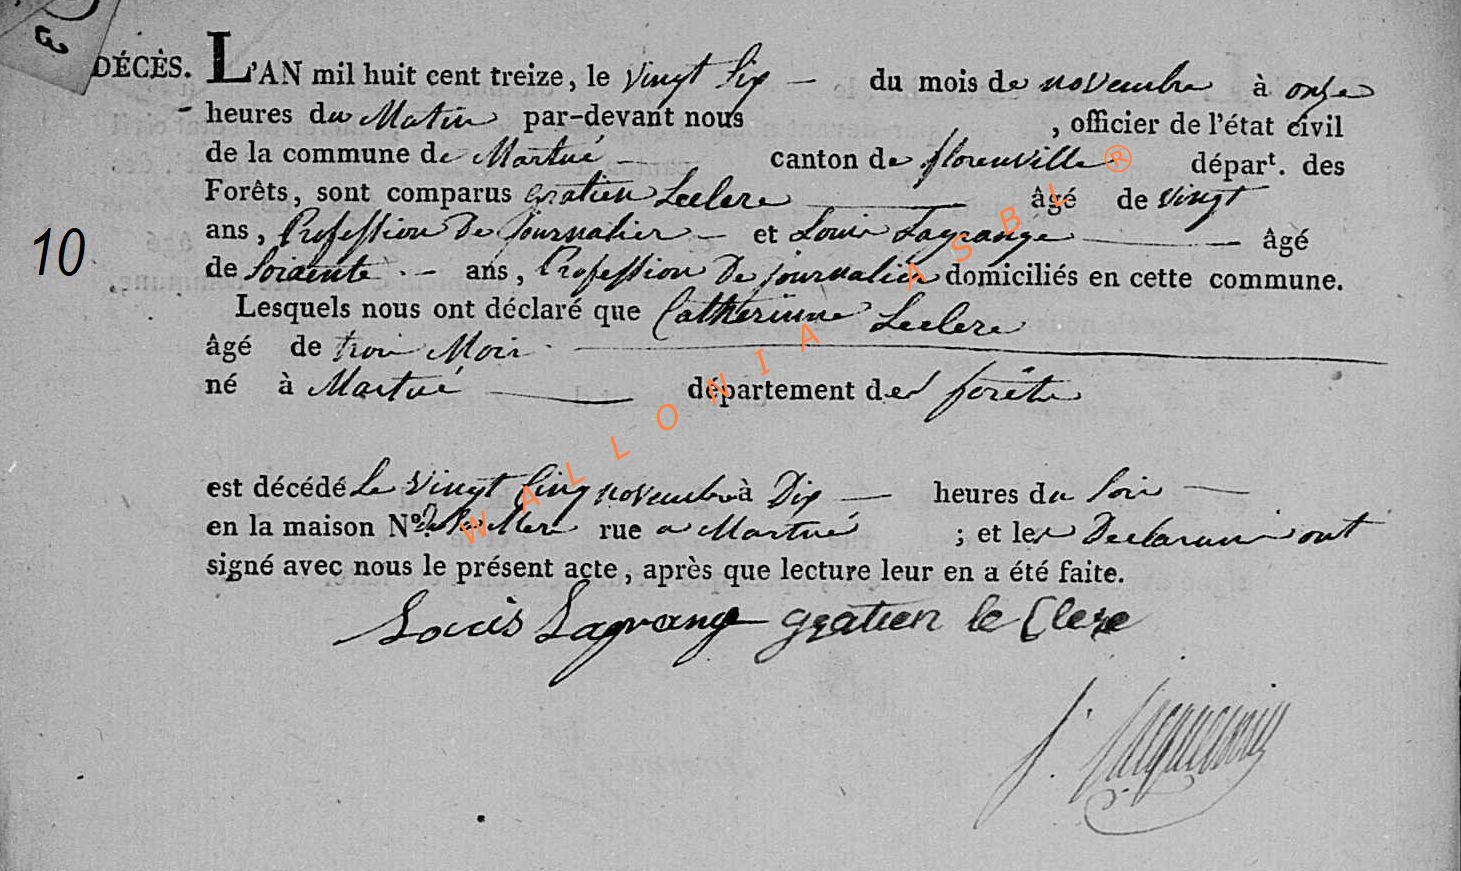 DÉCÈS. L'AN mil huit cent treize, le vingt Six — du mois de novembre à onze
heures du Matin par-devant nous , officier de l'état civil
de la commune de Martué — canton de florenville départ. des
Forêts, sont comparus gratien Leclere — âgé de vingt
ans, Profession De Journalier — et Louis Lagrange — âgé
10
de Soixente — ans, Profession De journalier domiciliés en cette commune.
Lesquels nous ont déclaré que Catherinne Leclere
âgé de trois Mois —
né à Martué — département des forêts
est décédé Le vingt Cinq novembre à Dix — heures du Soir —
en la maison N.º rue a Martué ; et les Declarans ont
signé avec nous le présent acte, après que lecture leur en a été faite.
Louis Lagrange gratien le Clere
J. Jacquemin
WALLONIA ASBL ®